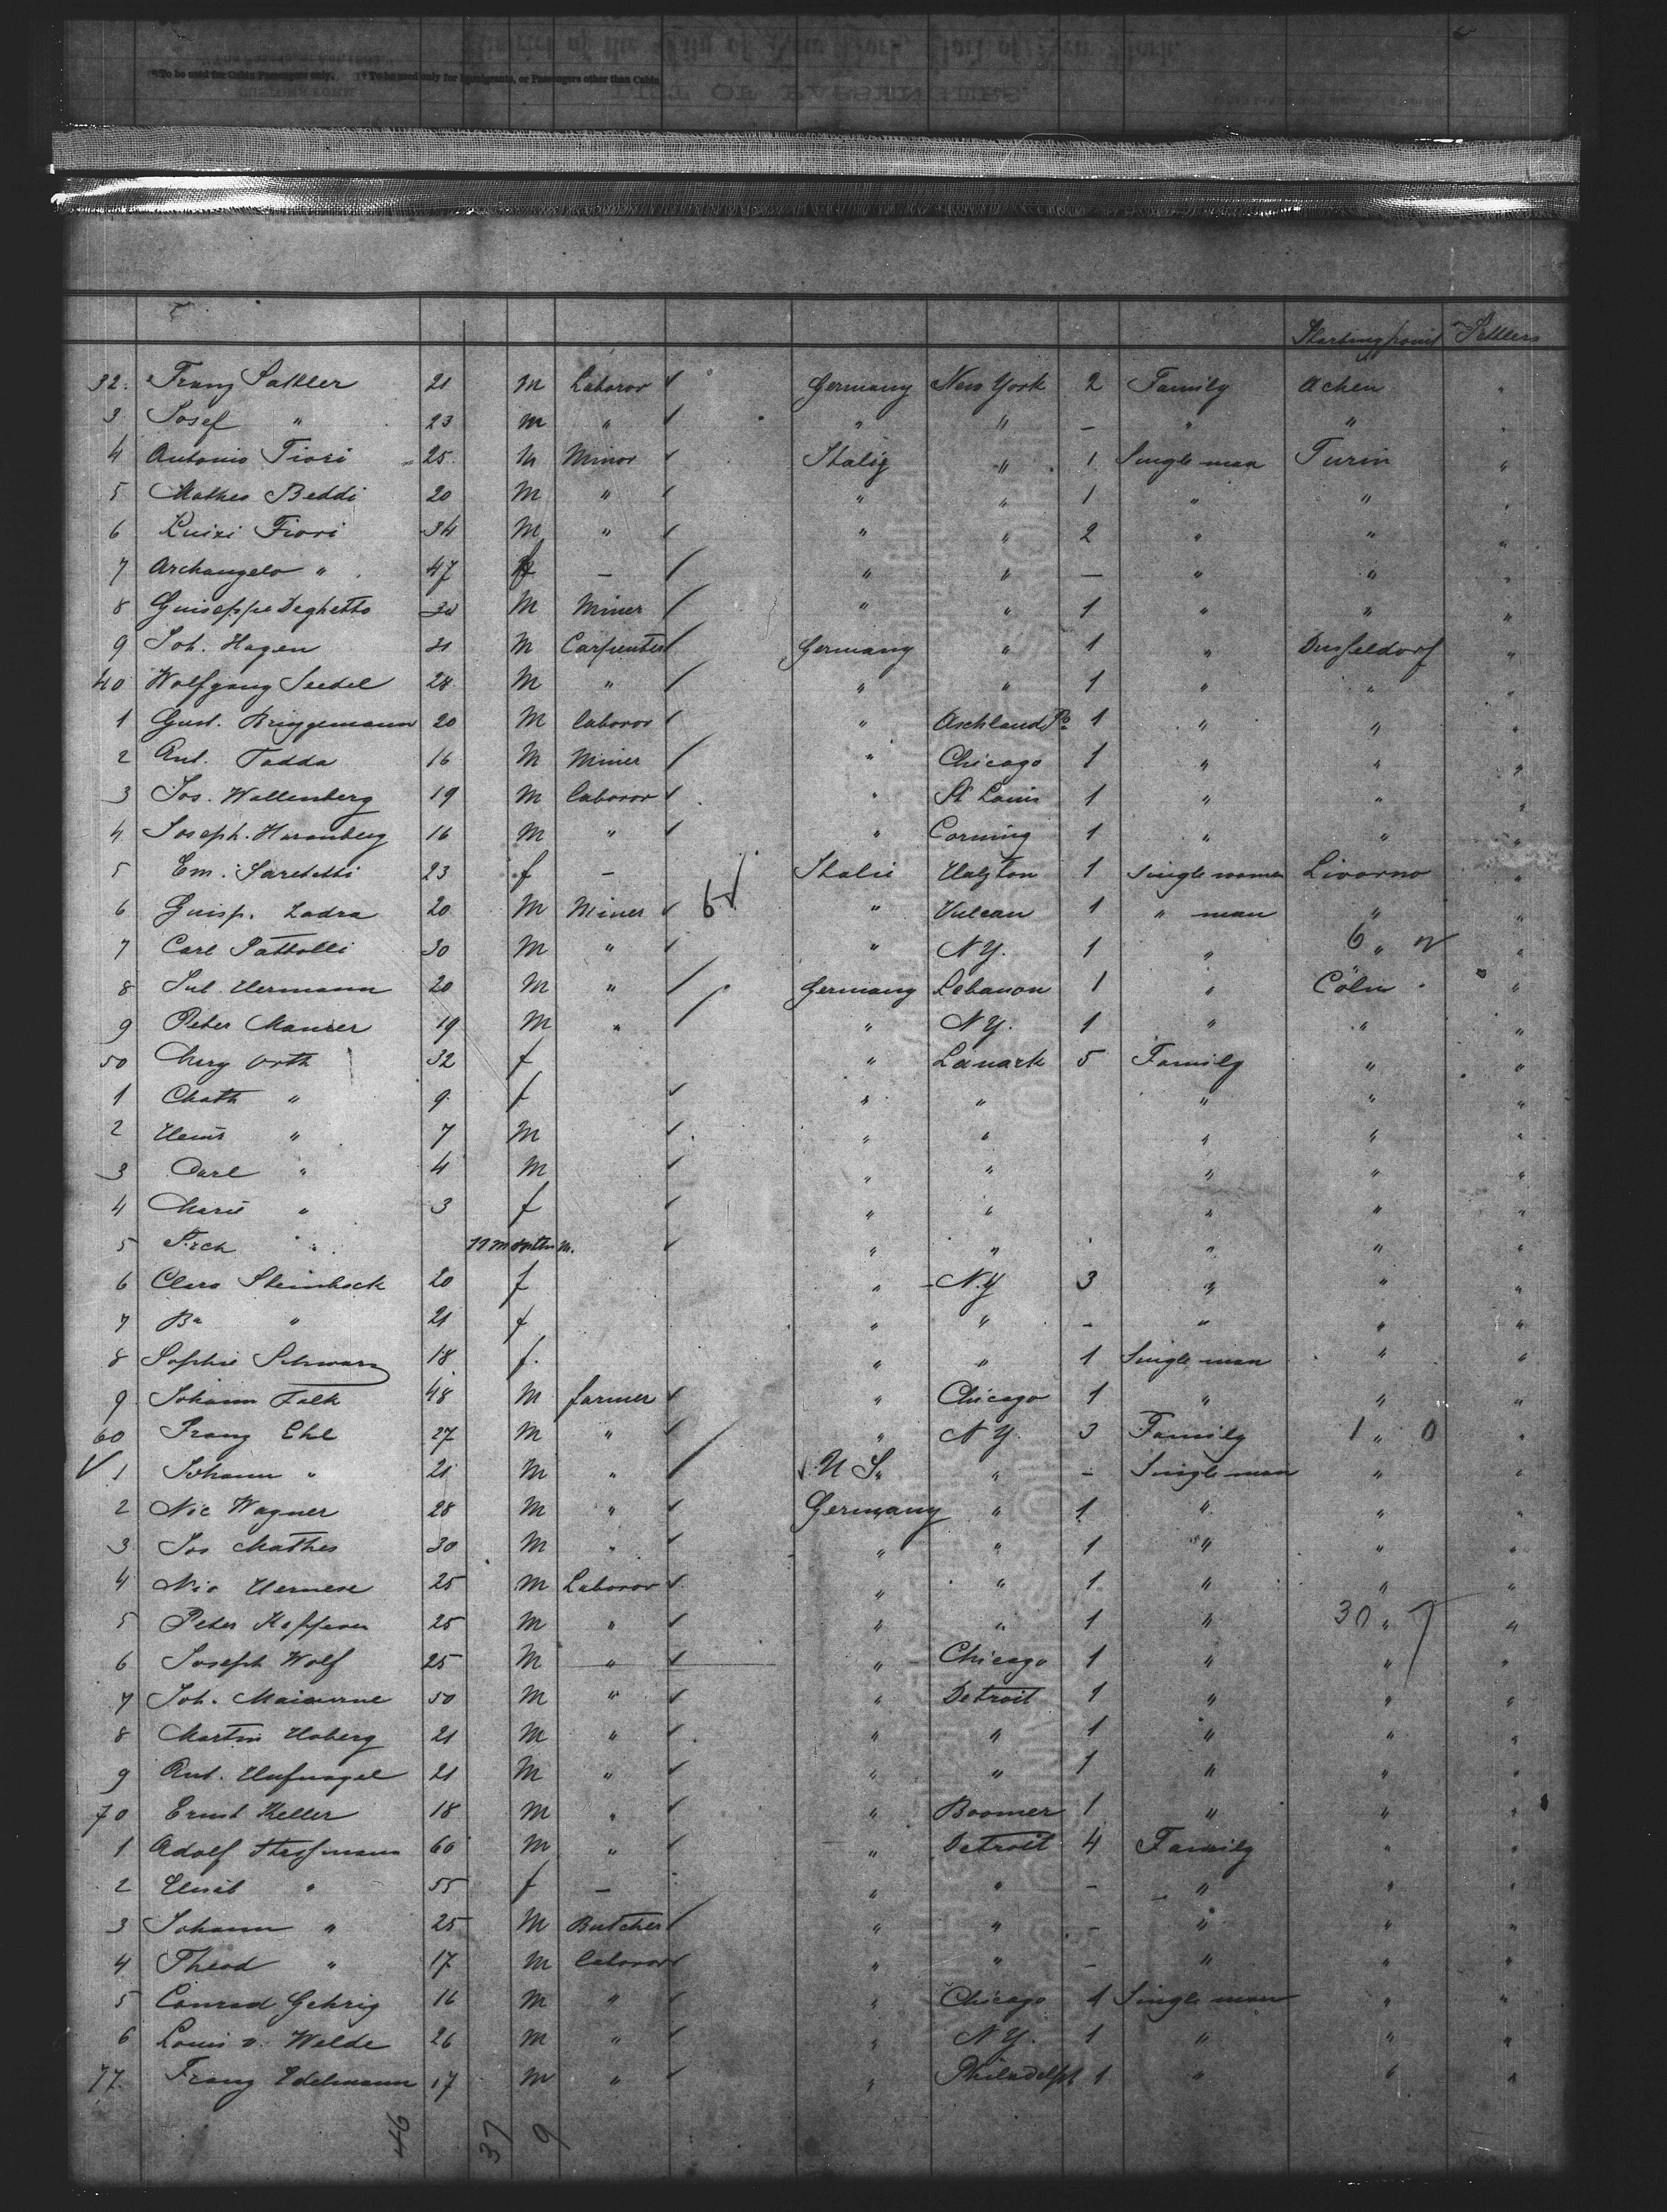 *To be used for Cabin Passengers only. †To be used only for Immigrants, or Passengers other than Cabin.
LIST OF PASSENGERS
Starting point Settlers
32. Franz Sattler 21 M Laboror ✓ Germany New York 2 Family Achen "
3 Josef " 23 M " ✓ " " – " " "
4 Antonio Fiori 25 M Minor ✓ Italig " 1 Single man Turin "
5 Mathes Beddi 20 M " ✓ " " 1 " " "
6 Luizi Fiori 34 M " ✓ " " 2 " " "
7 Archangelo " 47 f – / " " – " " "
8 Guiseppe Deghetto 30 M Miner / " " 1 " " "
9 Joh. Hagen 21 M Carpenter / Germany " 1 " Dusseldorf "
40 Wolfgang Seidel 28 M " / " " 1 " " "
1 Gust. Briggemann 20 M laboror ✓ " Aschland Pa 1 " " "
2 Ant. Tadda 16 M Miner / " Chicago 1 " " "
3 Jos. Wallenberg 19 M laboror ✓ " St Louis 1 " " "
4 Joseph. Haramberg 16 M " ✓ " Corning 1 " " "
5 Em. Saretetti 23 f – Italie Hazlton 1 Single women Livorno "
6 Guisp. Zadra 20 M Miner ✓ 6 ✓ " Vulcan 1 " man " "
7 Carl Pattolli 30 M " ✓ " N Y. 1 " 6 " "
8 Jul. Hermann 20 M " / Germany Lebanon 1 " Cöln "
9 Peter Maurer 19 M " / " N Y. 1 " " "
50 Marg Orth 32 f " Lanark 5 Family " "
1 Chath " 9 f ✓ " " " " "
2 Heinr " 7 M ✓ " " " " "
3 Carl " 4 M ✓ " " " " "
4 Marie " 3 f ✓ " " " " "
5 " 11 months M. ✓ " " " " "
6 Clara Steinbock 20 f " N.Y 3 " " "
7 Ba " 21 f " " – " " "
8 Sophie Schwarz 18 f. " " 1 Single man " "
9 Johann Falk 48 M farmer ✓ " Chicago 1 " " "
60 Franz Ehl 27 M " ✓ " N Y. 3 Family 1 " 0 "
✓ 1 Johann " 21 M " / ✓ U S. " – Single man " "
2 Nic Wagner 28 M " ✓ Germany " 1 " " "
3 Jos Mathes 30 M " ✓ " " 1 " " "
4 Nic 25 M Laboror ✓ " " 1 " " "
5 Peter 25 M " ✓ " " 1 " 30 " "
6 Joseph Wolf 25 M " ✓ " Chicago 1 " " "
7 Joh. 50 M " ✓ " Detroit 1 " " "
8 Martin Hoberg 21 M " ✓ " " 1 " " "
9 Ant. Hufnagel 21 M " ✓ " " 1 " " "
70 Ernst Keller 18 M " ✓ " Boomer 1 " " "
1 Adolf 60 M " ✓ " Detroit 4 Family " "
2 Elisab " 55 f – " " – " " "
3 Johann " 25 M Butcher / " " – " " "
4 Theod " 17 M laboror ✓ " " – " " "
5 Conrad Gehrig 16 M " ✓ " Chicago 1 Single man " "
6 Louis v. Welde 26 M " ✓ " N Y. 1 " " "
77. Franz Edelmann 17 M " ✓ " Philadelph 1 " " "
46 37 9